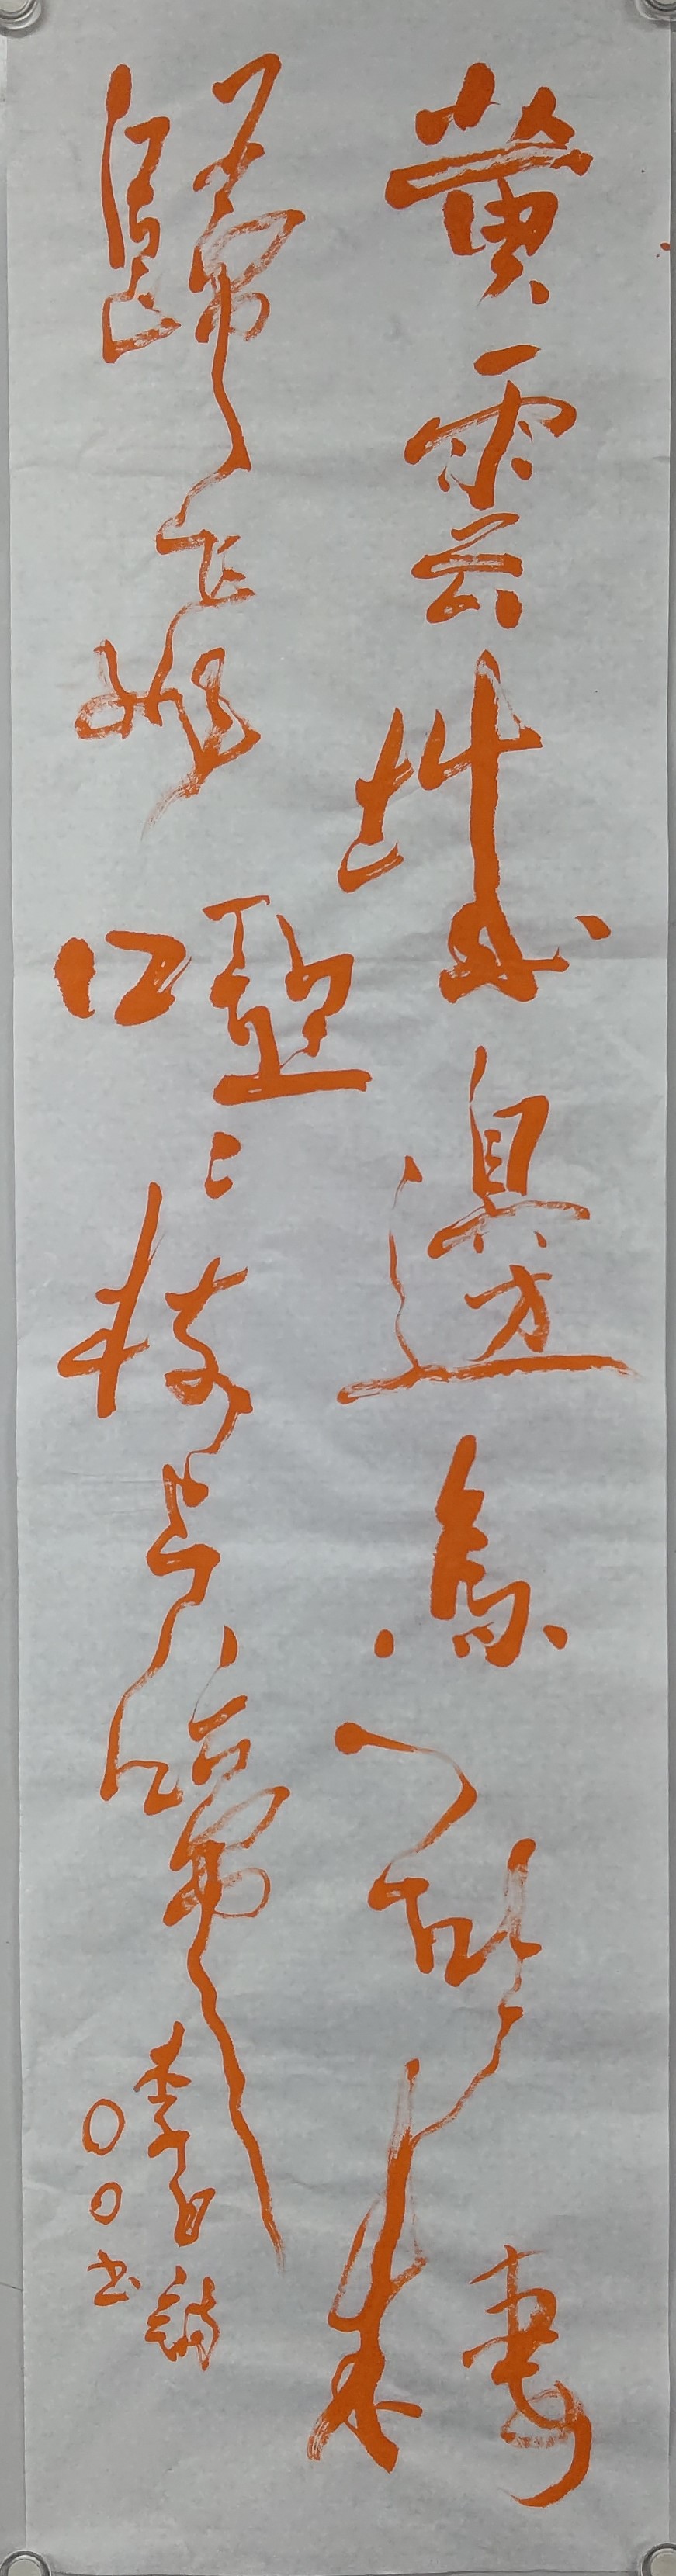 黄雲城邊烏欲棲
歸飛啞〻枝上啼
李白詩
〇〇书